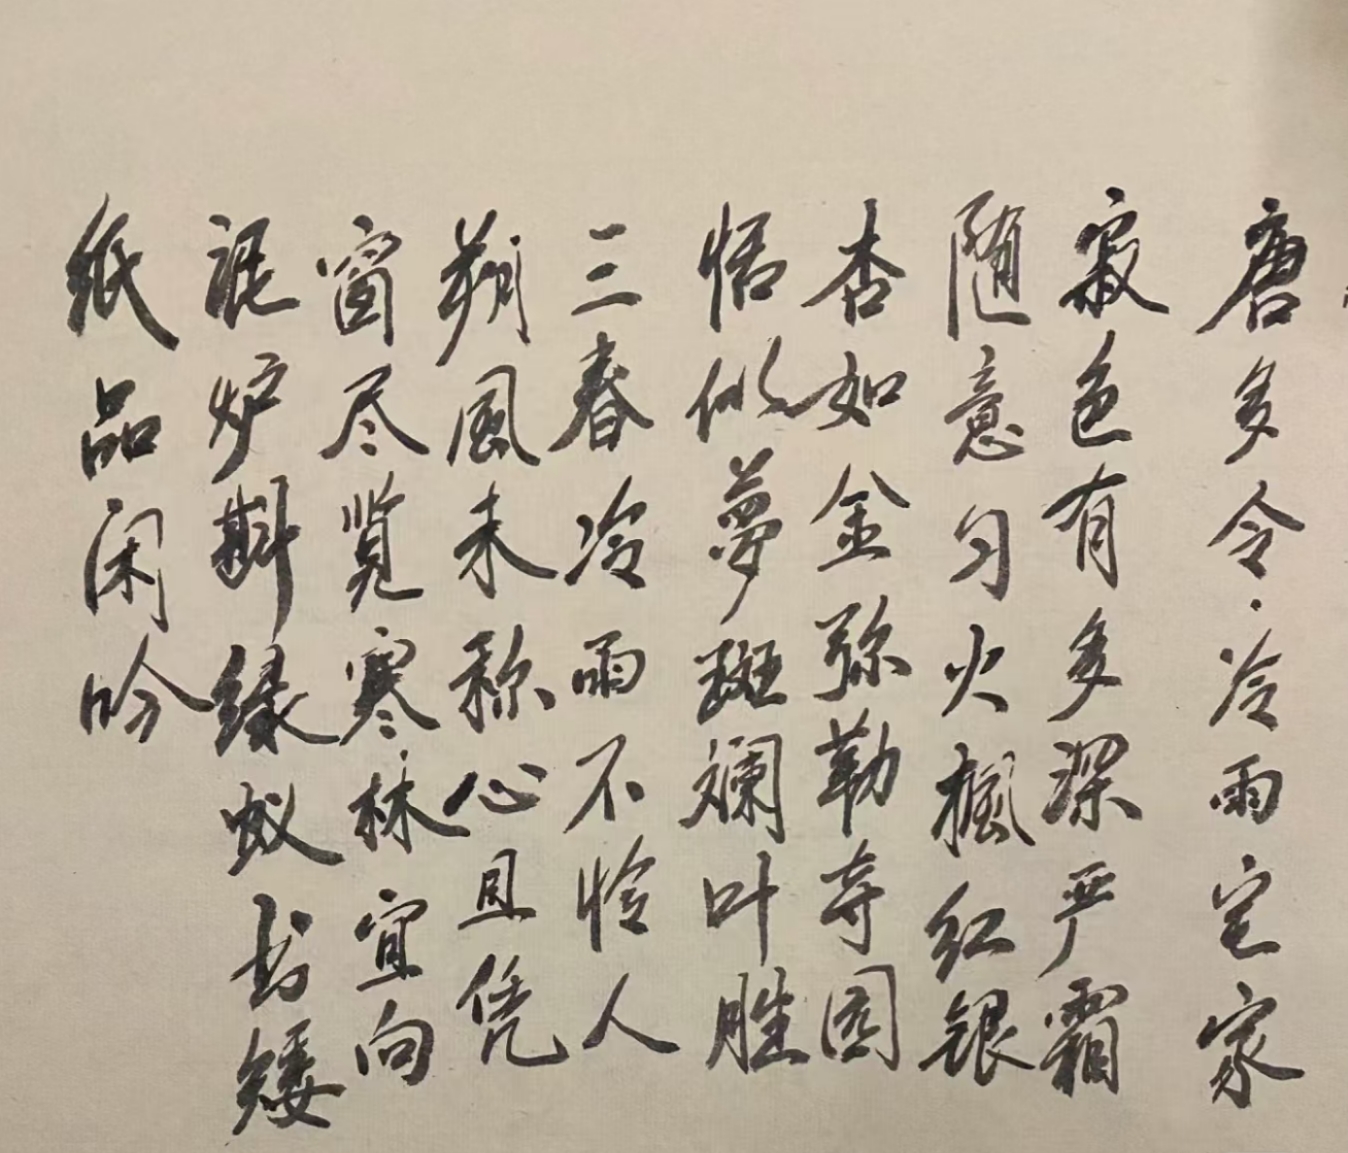 唐多令·冷雨宅家
寂色有多深严霜
随意匀火枫红银
杏如金弥勒寺園
恬似夢斑斓叶胜
三春冷雨不怜人
朔風未称心且凭
窗尽览寒林宜向
炉斟绿蚁书矮
纸品闲吟